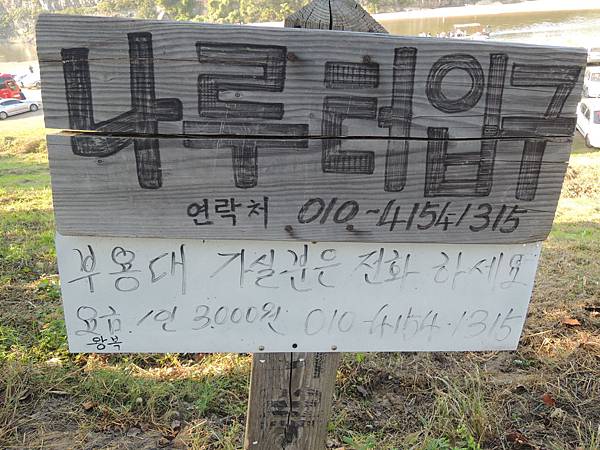 나루터입구
연락처 010-41541315
부용대 가실분은 전화 하세요
요금 1인 3.000원 010-4154-1315
왕복